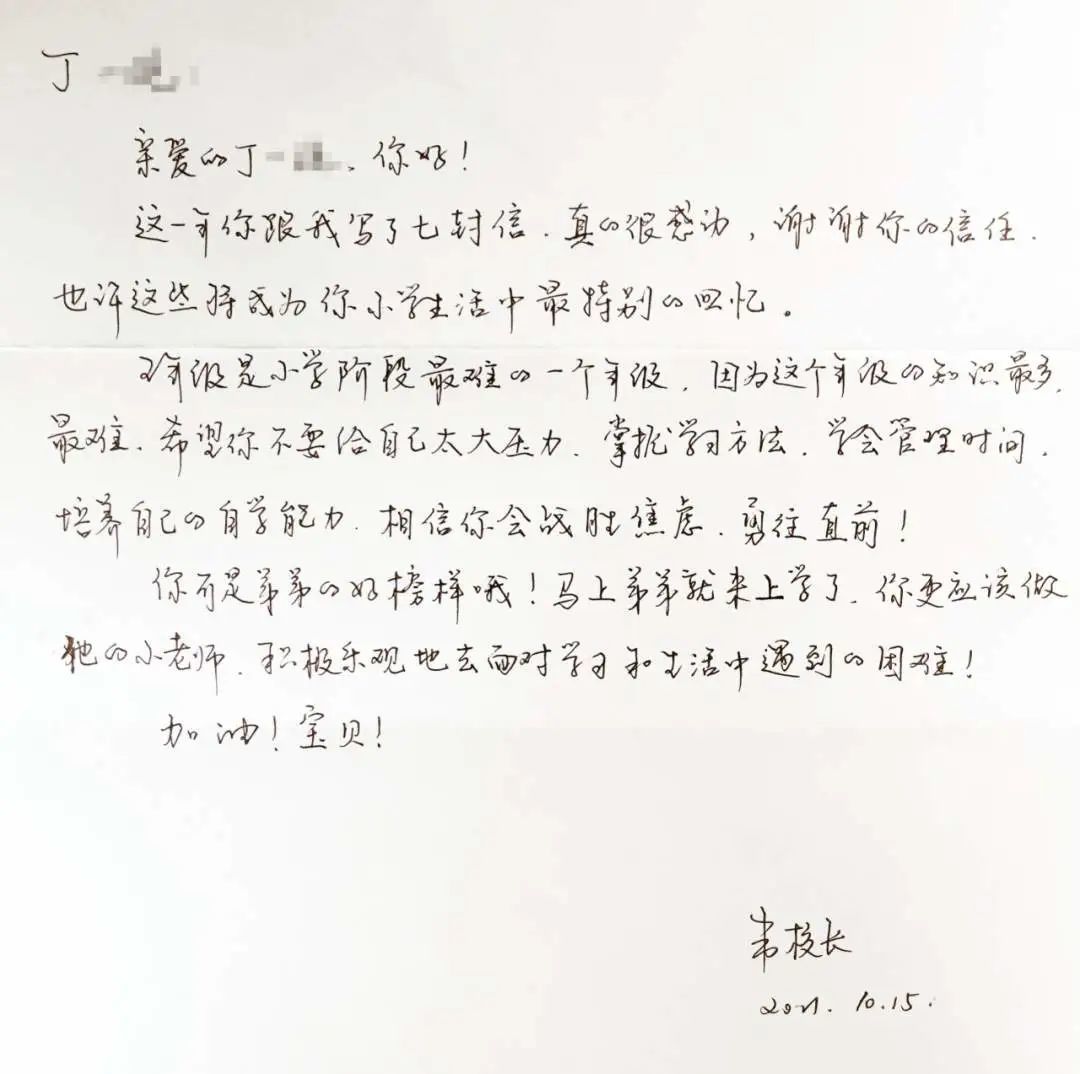 丁一
亲爱的丁一、你好！
这一年你跟我写了七封信.真的很感动，谢谢你的信任.
也许这些将成为你小学生活中最特别的回忆。
五年级是小学阶段最难的一个年级.因为这个年级的知识最多.
最难.希望你不要给自己太大压力.掌握学习方法.学会管理时间.
培养自己的自学能力.相信你会战胜焦虑.勇往直前！
你可是弟弟的好榜样哦！马上弟弟就来上学了.你更应该做
他的小老师.积极乐观地去面对学习和生活中遇到的困难！
加油！宝贝！
校长
2021.10.15.